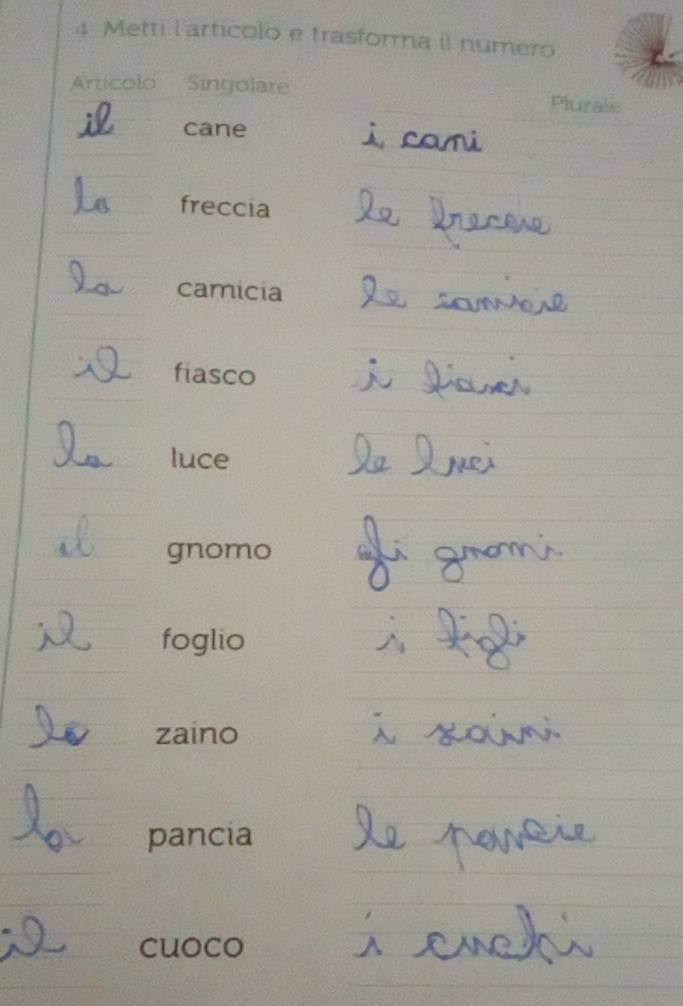 4 Metti l'articolo e trasforma il numero
Articolo Singolare Plurale
il cane i cani
la freccia le
la camicia le
il fiasco i
la luce le luci
il gnomo gnomi
il foglio i
lo zaino i zaini
la pancia le pancie
il cuoco i cuchi